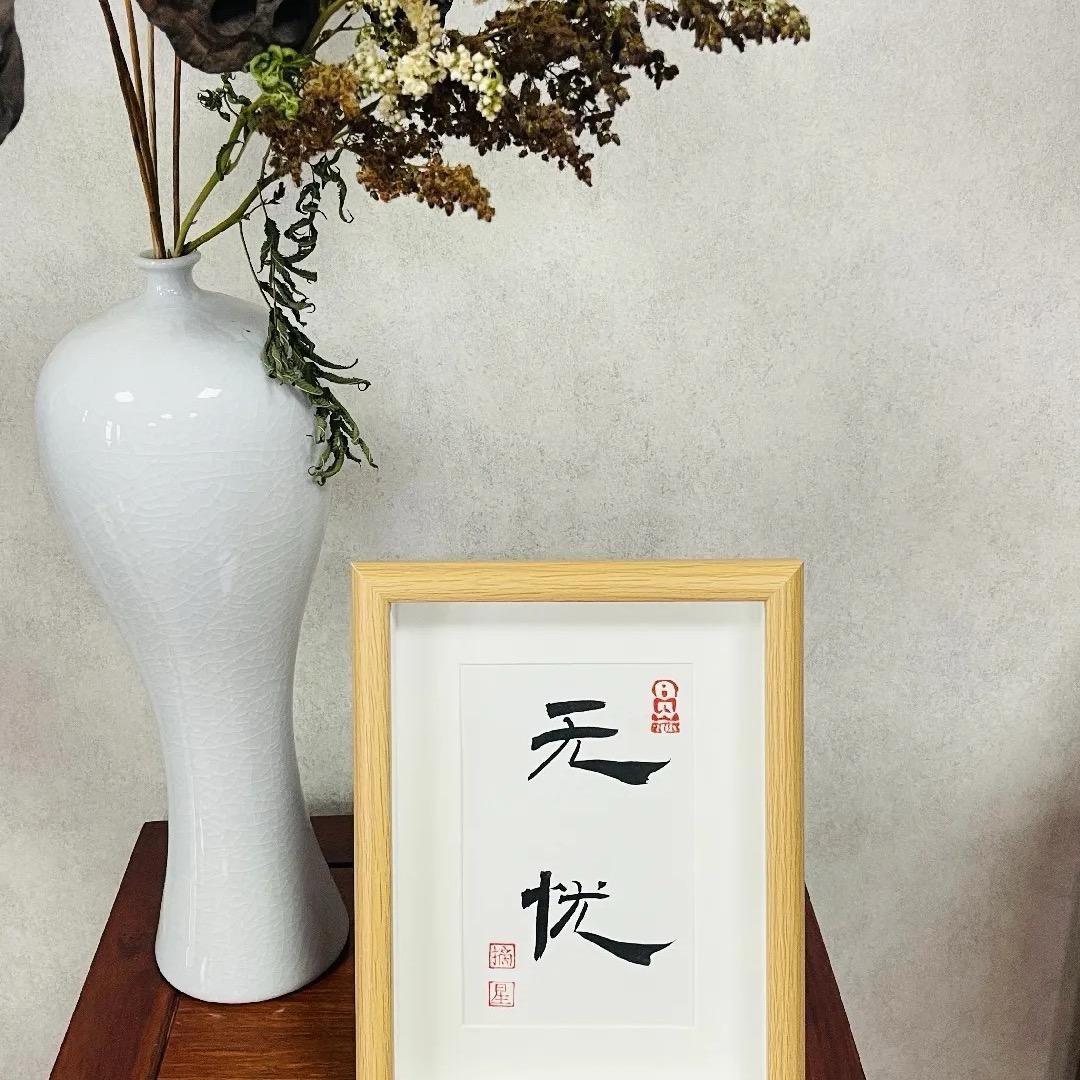 无
忧
摘
星